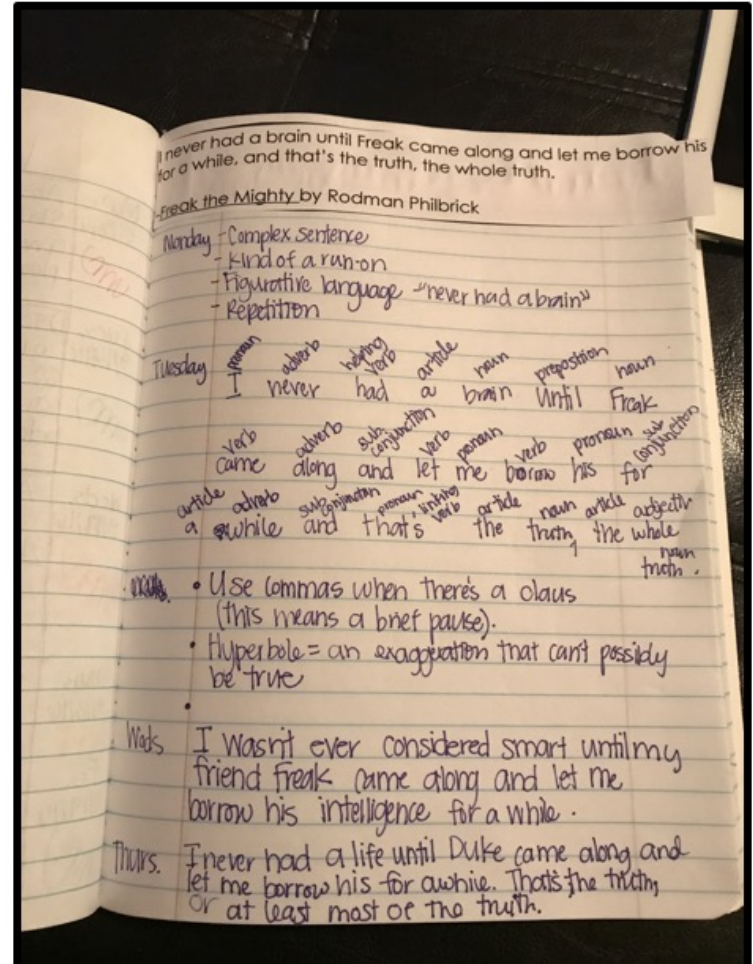 I never had a brain until Freak came along and let me borrow his
for a while, and that's the truth, the whole truth.
-Freak the Mighty by Rodman Philbrick
Monday - Complex sentence
- Kind of a run-on
- Figurative language - "never had a brain"
- Repetition
pronoun adverb helping verb article noun preposition noun
Tuesday I never had a brain until Freak
verb adverb sub conjunction verb pronoun verb pronoun sub conjunction
came along and let me borrow his for
article adverb sub conjunction pronoun linking verb article noun article adjective
a while and that's the truth, the whole
noun
truth.
• Use commas when there's a claus
(this means a brief pause).
• Hyperbole = an exaggeration that can't possibly
be true
•
Weds I wasn't ever considered smart until my
friend Freak came along and let me
borrow his intelligence for a while.
Thurs. I never had a life until Duke came along and
let me borrow his for awhile. That's the truth,
or at least most of the truth.